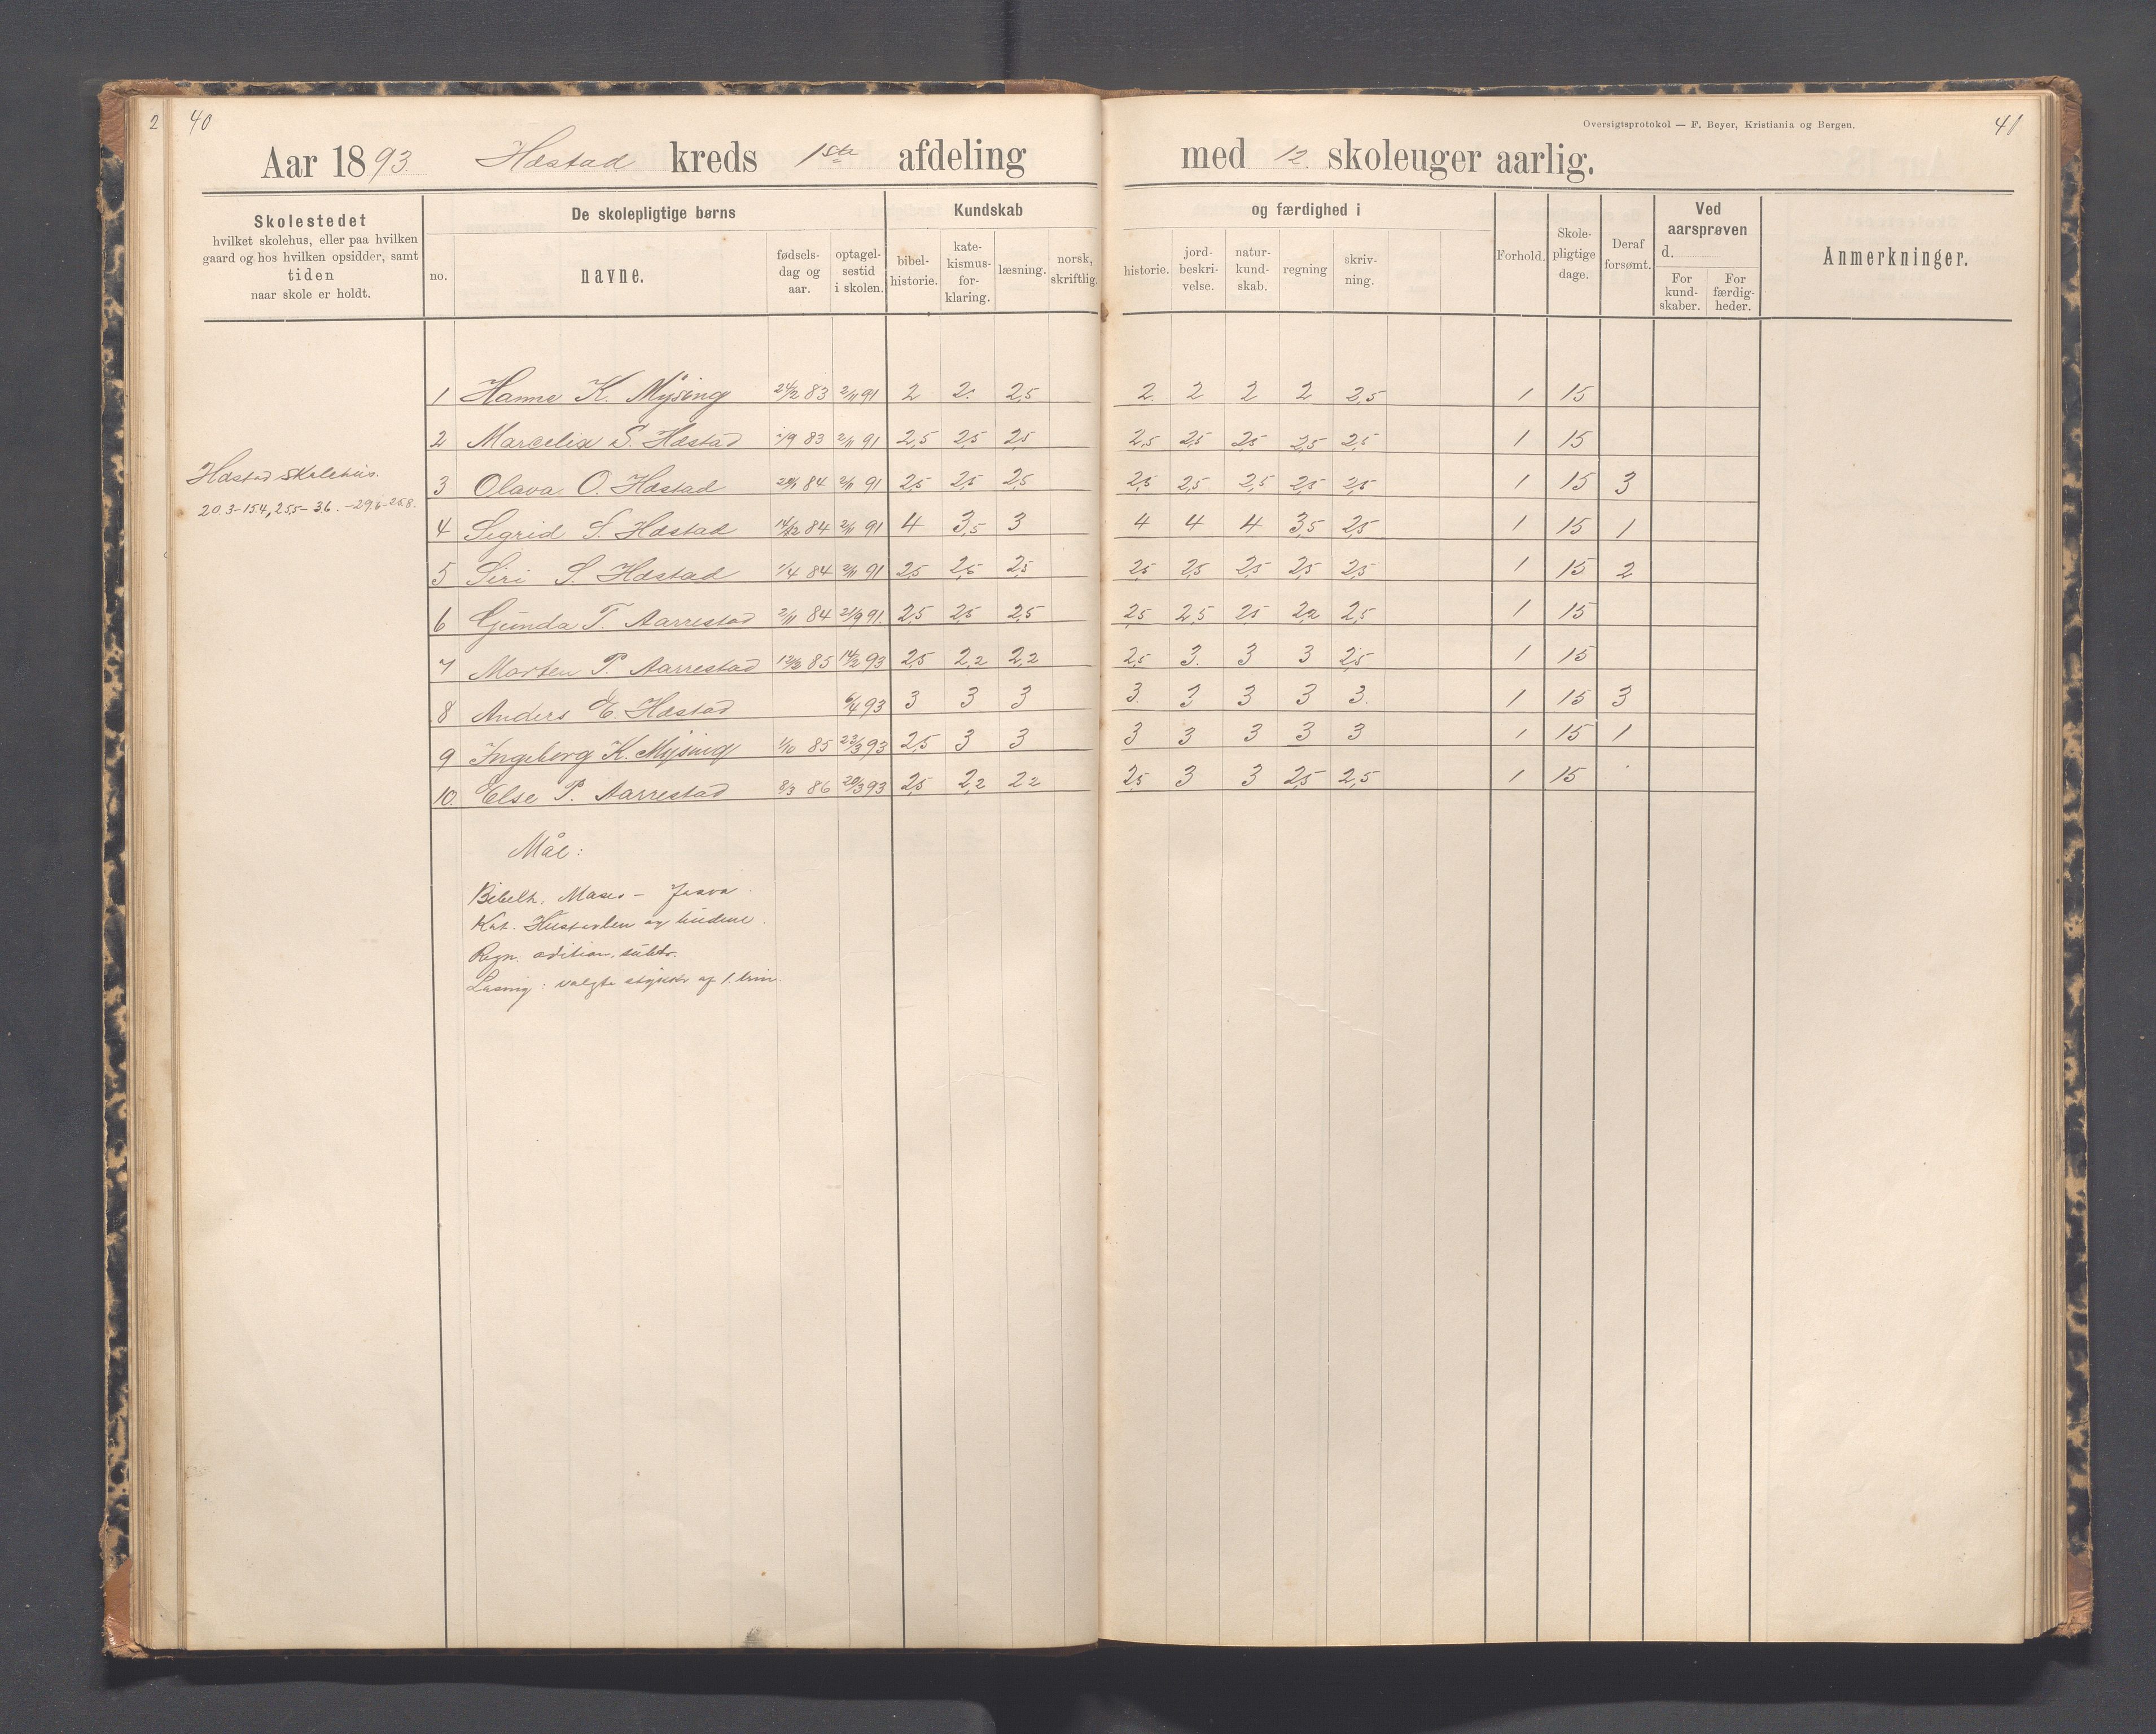 2 40
Oversigtsprotokol — F. Beyer, Kristiania og Bergen. 41
Aar 1893. Hæstad kreds 1ste afdeling med 12. skoleuger aarlig.
Skolestedet
hvilket skolehus, eller paa hvilken
gaard og hos hvilken opsidder, samt
tiden
naar skole er holdt.
De skolepligtige børns
no.
navne.
fødsels-
dag og
aar.
optagel-
sestid
i skolen.
Kundskab og færdighed i
bibel-
historie.
kate-
kismus-
for-
klaring.
læsning.
norsk,
skriftlig.
historie.
jord-
beskri-
velse.
natur-
kund-
skab.
regning
skriv-
ning.
Forhold.
Skole-
pligtige
dage.
Deraf
forsømt.
Ved
aarsprøven
d.
For
kund-
skaber.
For
færdig-
heder.
Anmerkninger.
1 Hanne K. Mysing 24/2 83 2/11 91 2 2. 2,5 2. 2 2 2 2,5 1 15
2 Marcelia S. Hæstad /9 83 2/11 91 2,5 2,5 2,5 2,5 2,5 2,5 2,5 2,5 1 15
Hæstad skolehus.
20.3-15.4, 25.5-3.6. -29.6-25.8.
3 Olava O. Hæstad 84 2/11 91 2,5 2,5 2,5 2,5 2,5 2,5 2,5 2,5 1 15 3
4 Sigrid S. Hæstad 14/12 84 2/11 91 4 3,5 3 4 4 4 3,5 2,5 1 15 1
5 Siri S. Hæstad /4 84 2/11 91 2,5 2,5 2,5 2,5 2,5 2,5 2,5 2,5 1 15 2
6 Gunda T. Aarrestad 2/11 84 21/9 91. 2,5 2,5 2,5 2,5 2,5 2,5 2,2 2,5 1 15
7 Morten P. Aarrestad 85 14/2 93 2,5 2,2 2,2 2,5 3. 3 3 2,5 1 15
8 Anders E. Hæstad 6/4 93 3 3 3 3. 3 3 3 3. 1 15 3
9 Ingeborg K. Mysing 1/10 85 22/3 93 2,5 3 3 3 3 3 3 3 1 15 1
10. Else P. Aarrestad 8/3 86 20/3 93 2,5 2,2 2,2 2,5 3 3 2,5 2,5 1 15
Mål:
Bibelh. Moses - Josva.
Kat. Hustavlen og budene.
Regn. adition, subtr.
Læsnig: valgte stykker af 1. trin.